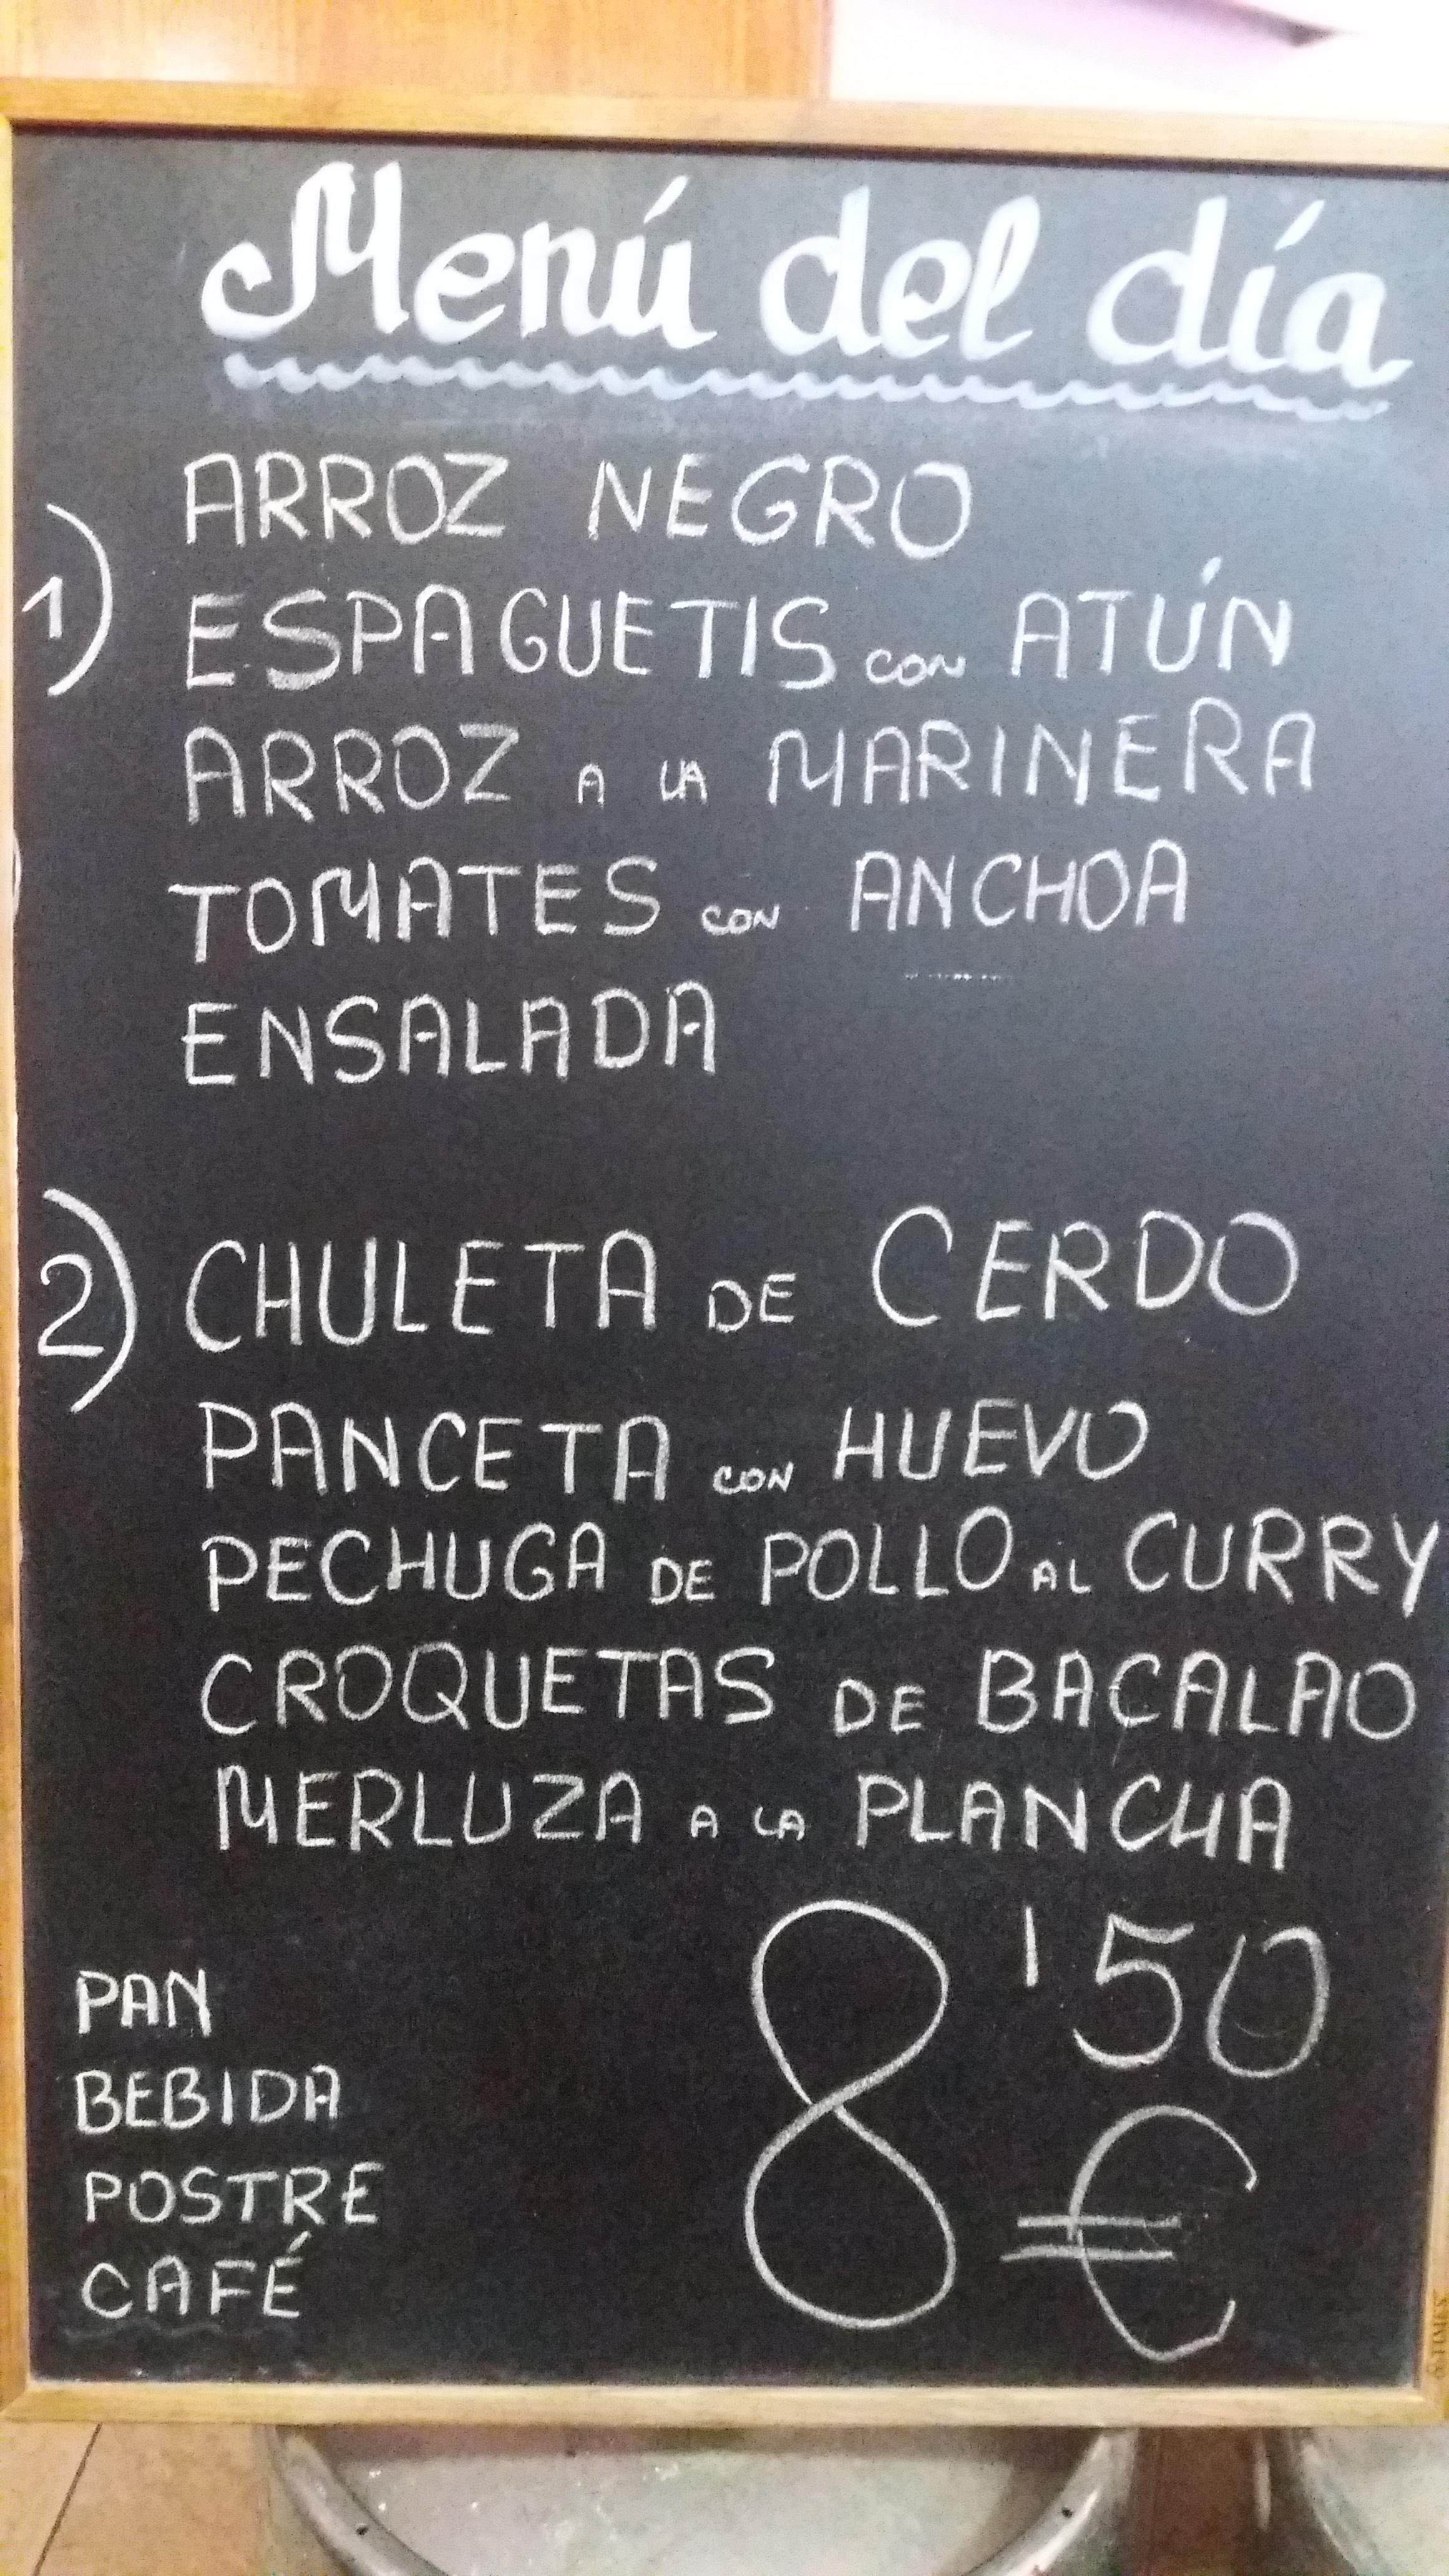 Menú del día
1)
ARROZ NEGRO
ESPAGUETIS con ATÚN
ARROZ A LA MARINERA
TOMATES con ANCHOA
ENSALADA
2) CHULETA DE CERDO
PANCETA con HUEVO
PECHUGA DE POLLO AL CURRY
CROQUETAS DE BACALAO
MERLUZA A LA PLANCHA
PAN
BEBIDA
POSTRE
CAFÉ
8'50
€